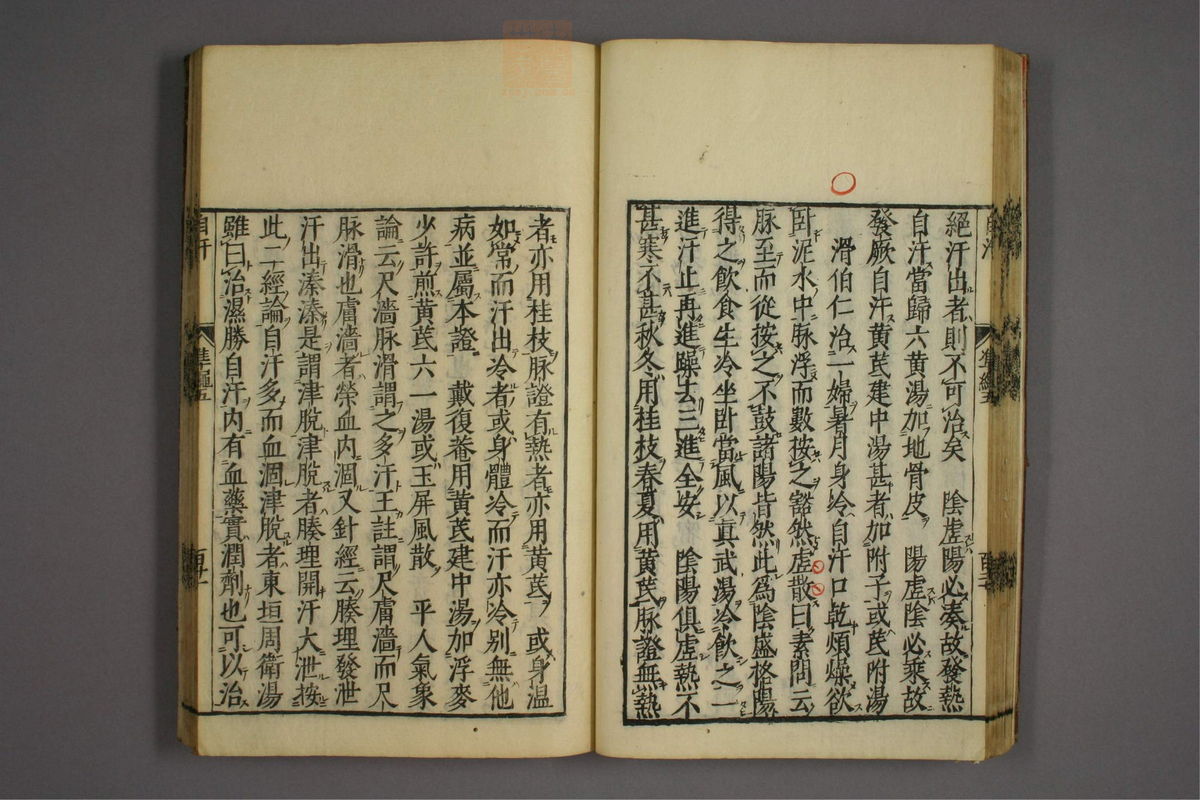 絕汗出者則不可治矣　陰虛陽必湊故發熱
自汗當歸六黃湯加地骨皮　陽虛陰必乘故
發厥自汗黃芪建中湯甚者加附子或芪附湯
滑伯仁治一婦暑月身冷自汗口乾煩燥欲
臥泥水中脉浮而數按之豁然虛散曰素問云
脉至而從按之不鼓諸陽皆然此爲陰盛格陽
得之飲食生冷坐臥當風以眞武湯冷飲之一
進汗止再進躁去三進全安　陰陽俱虛熱不
甚寒不甚秋冬用桂枝春夏用黃芪脉證無熱
者亦用桂枝脉證有熱者亦用黃芪　或身温
如常而汗出冷者或身體冷而汗亦冷别無他
病並屬本證　戴復菴用黃芪建中湯加浮麥
少許煎黃芪六一湯或玉屏風散　平人氣象
論云尺濇脉滑謂之多汗王註謂尺膚濇而尺
脉滑也膚濇者榮血内涸又針經云腠理發泄
汗出溱溱是謂津脫津脫者腠理開汗大泄按
此二經論自汗多而血涸津脫者東垣周衛湯
雖曰治濕勝自汗内有血藥實潤劑也可以治
自汗
準繩五